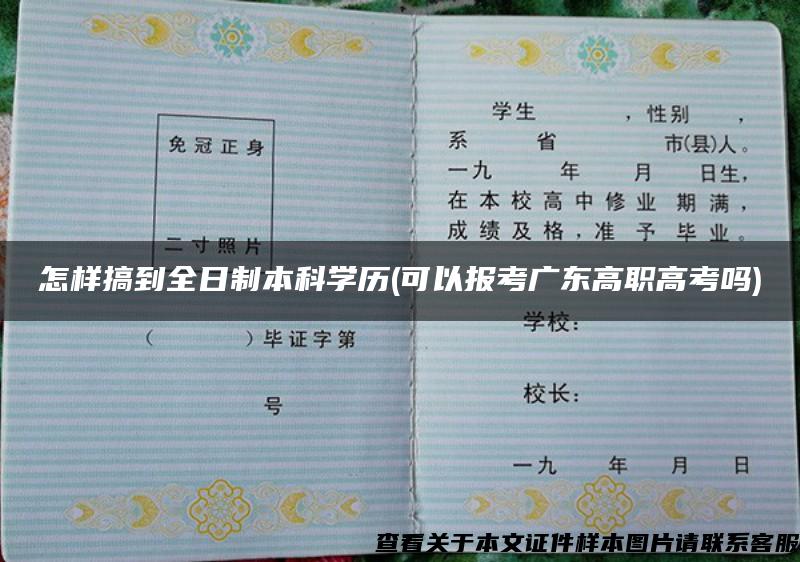 免冠正身
二寸照片
（ ）毕证字第
号
学生 ，性别 ，
系 省 市(县)人。
一九 年 月 日生，
在本校高中修业 期满，
成绩及格，准予毕业。
怎样搞到全日制本科学历(可以报考广东高职高考吗)
学校：
校长：
一九 年 月 日
查看关于本文证件样本图片请联系客服